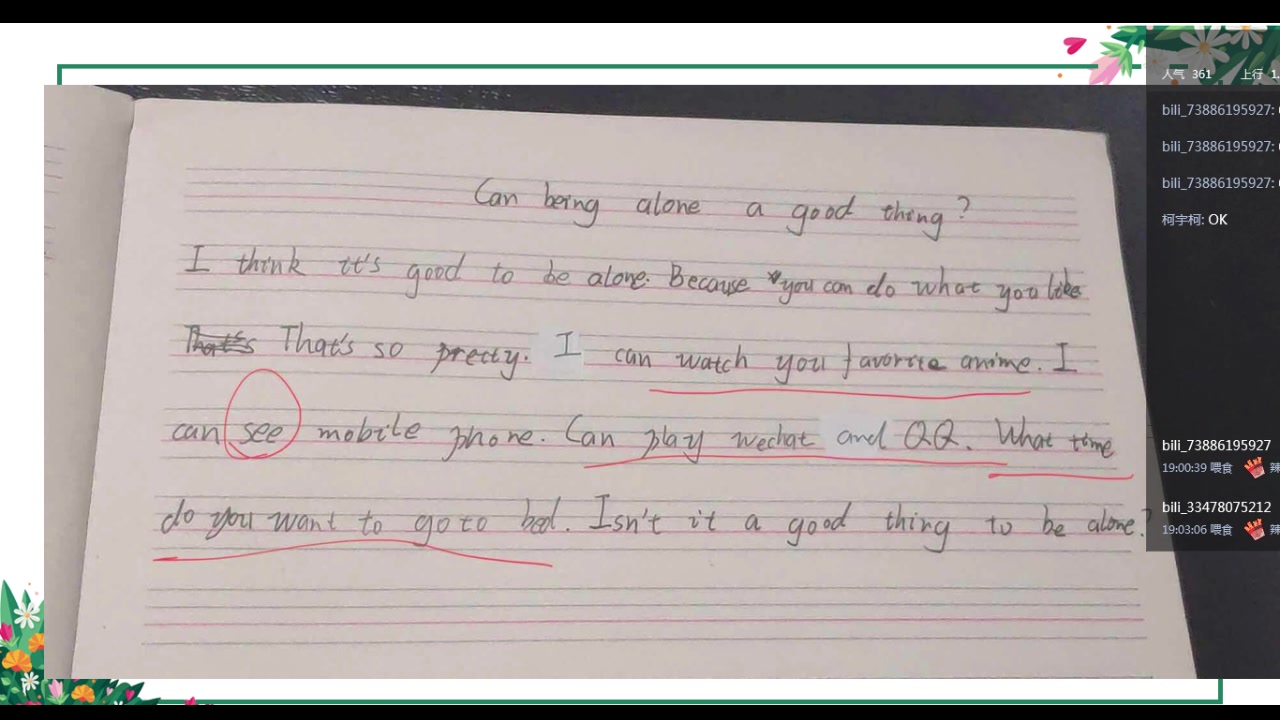 Can being alone a good thing?
I think it's good to be alone. Because you can do what you like
That's That's so pretty. I can watch you favorite anime. I
can see mobile phone. Can play wechat and QQ. What time
do you want to go to bed. Isn't it a good thing to be alone?
人气 361 上行 1.
bili_73886195927:
bili_73886195927:
bili_73886195927:
柯宇柯: OK
bili_73886195927
19:00:39 喂食 辣
bili_33478075212
19:03:06 喂食 辣